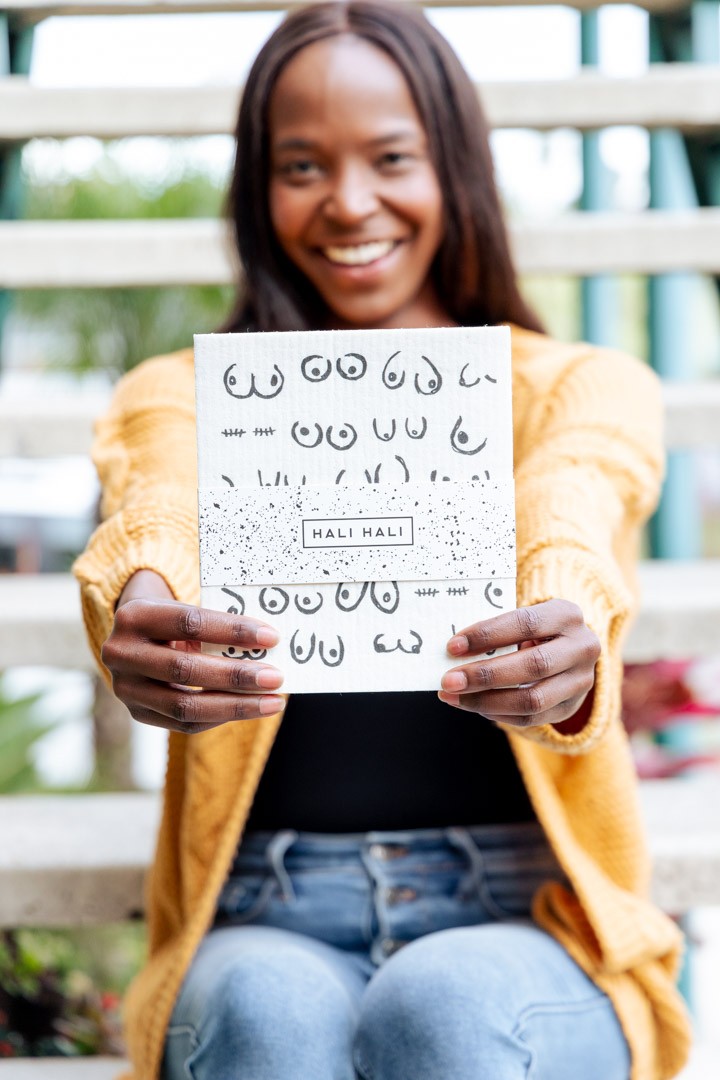 HALI HALI